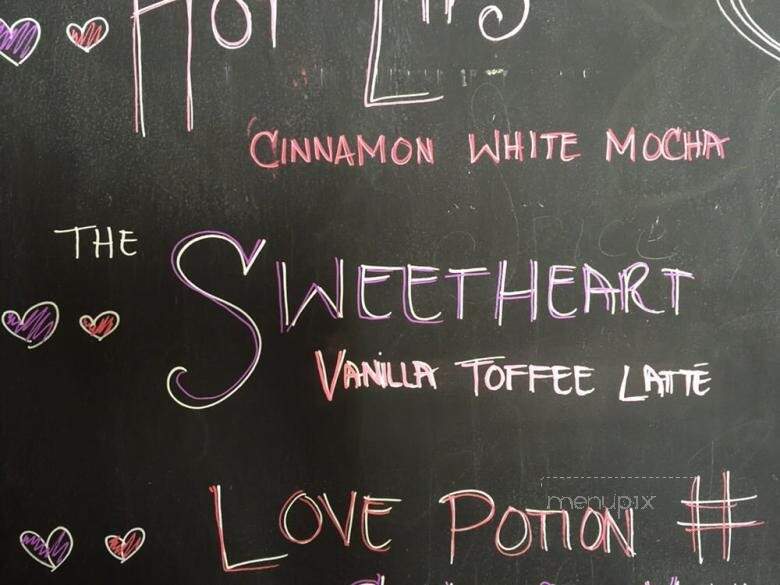 HOT LIPS
CINNAMON WHITE MOCHA
THE
SWEETHEART
VANILLA TOFFEE LATTE
LOVE POTION #
menupix